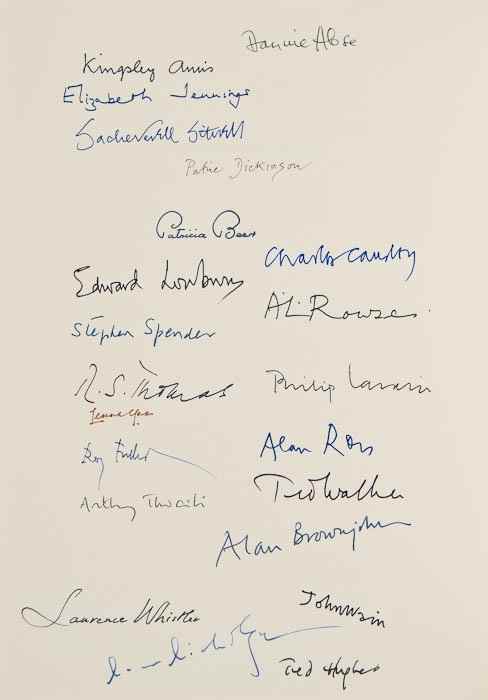 Dannie Abse
Kingsley Amis
Elizabeth Jennings
Sacheverell Sitwell
Patric Dickinson
Patricia Beer
Charles Causley
Edward Lowbury
A.L. Rowse
Stephen Spender
R.S. Thomas
Philip Larkin
Roy Fuller
Alan Ross
Anthony Thwaite
Ted Walker
Alan Brownjohn
Laurence Whistler
John Wain
Ted Hughes